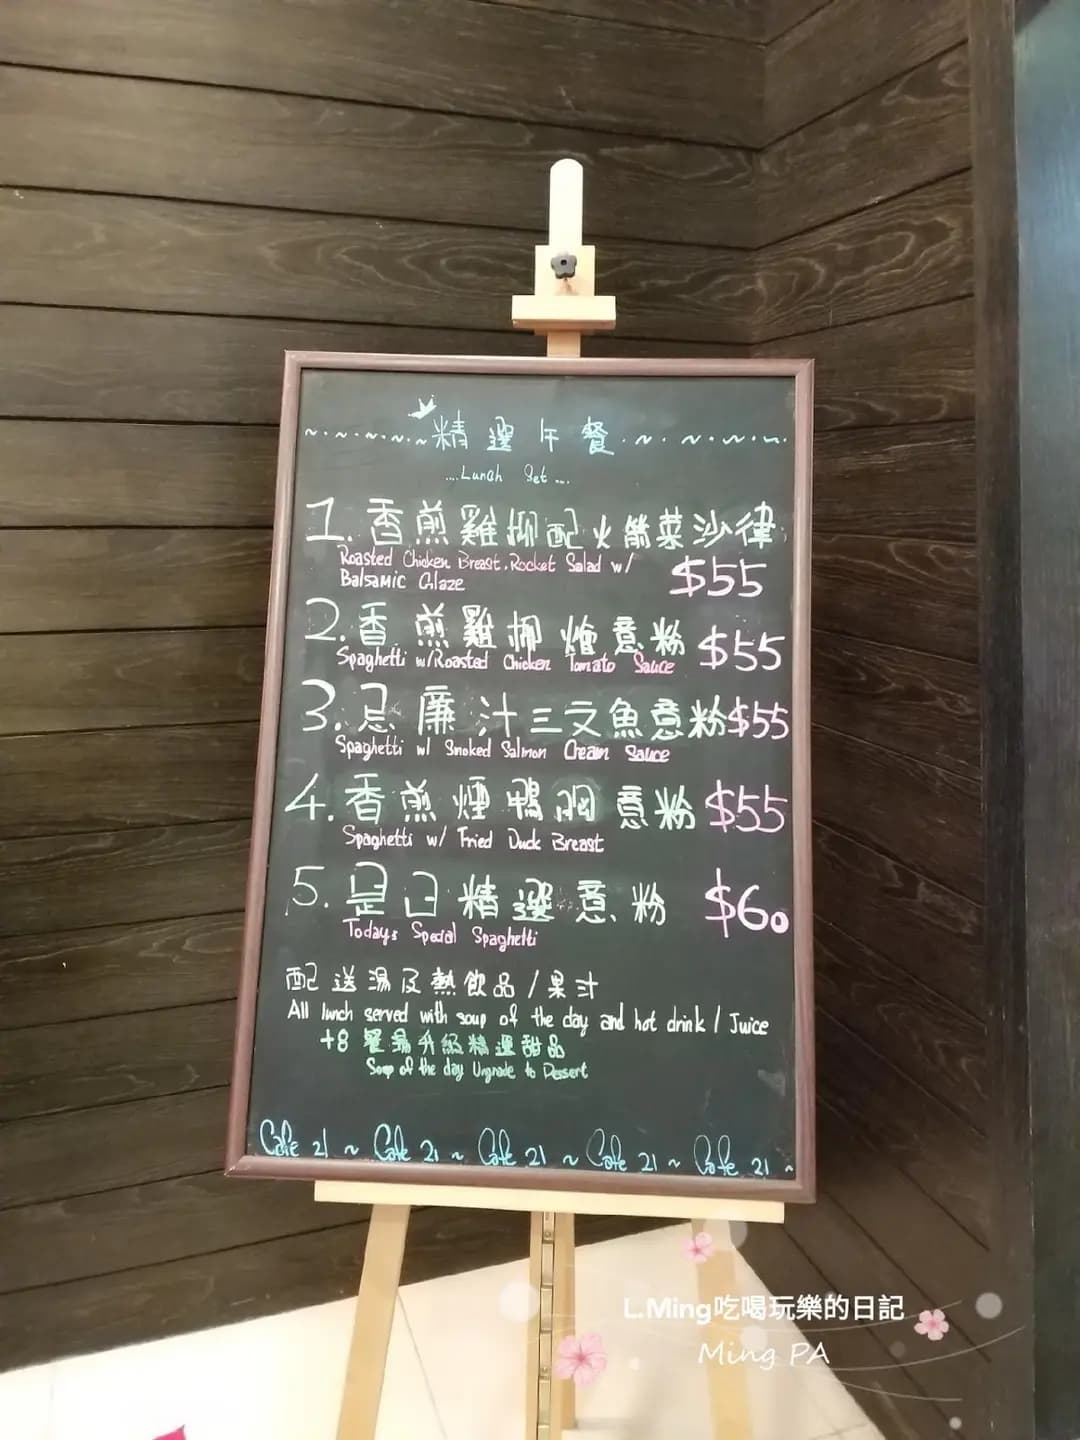 ~·~·~·~·~精選午餐·~·~·~·~·
....Lunch Set....
1.香煎雞柳配火箭菜沙律
Roasted Chicken Breast.Rocket Salad w/
Balsamic Glaze
$55
2.香煎雞柳燴意粉 $55
Spaghetti w/Roasted Chicken Tomato Sauce
3.忌廉汁三文魚意粉$55
Spaghetti w/ Smoked Salmon Cream Sauce
4.香煎煙鴨胸意粉 $55
Spaghetti w/ Fried Duck Breast
5.是日精選意粉 $60
Todays Special Spaghetti
配送湯及熱飲品/果汁
All lunch served with soup of the day and hot drink / Juice
+8 餐湯升級精選甜品
Soup of the day Upgrade to Dessert
Cafe 21 ~ Cafe 21 ~ Cafe 21 ~ Cafe 21 ~ Cafe 21 ~
L.Ming吃喝玩樂的日記
Ming PA